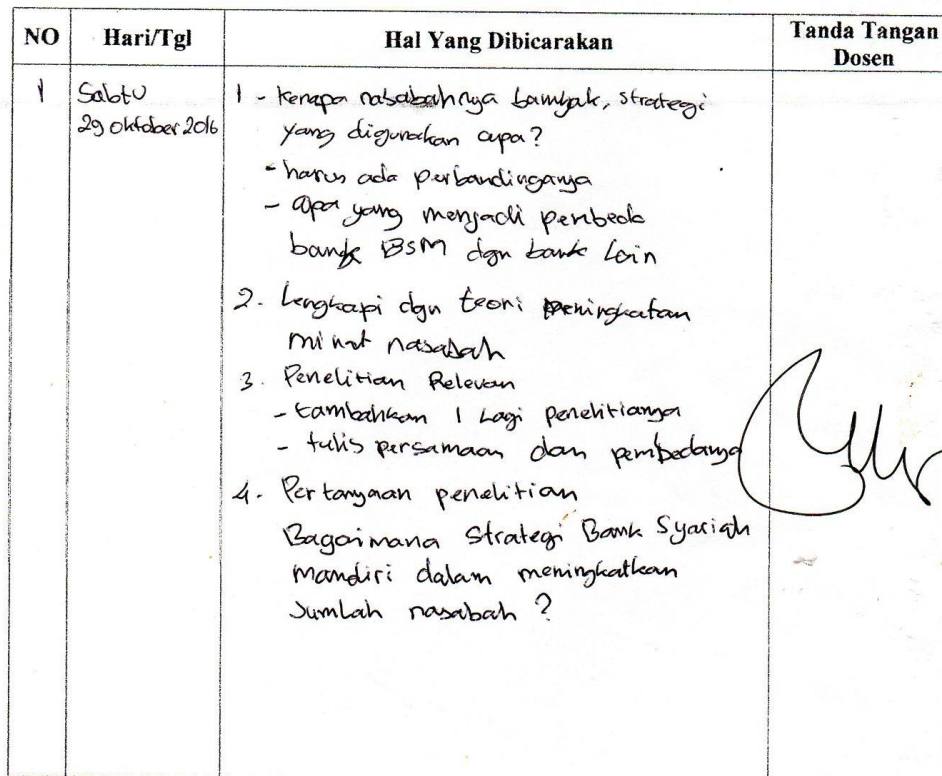 NO Hari/Tgl Hal Yang Dibicarakan Tanda Tangan
Dosen
1 Sabtu 1 - Kenapa nasabahnya bamyak, strategi
29 oktober 2016 yang digunakan apa?
- harus ada perbandinganya
- apa yang menjadi perbeda
bank BSM dgn bank Lain
2. Lengkapi dgn teori peningkatan
minat nasabah
3. Penelitian Relevan
- tambahkan 1 Lagi penelitianya
- tulis persamaan dan pembedanya
4. Pertanyaan penelitian
Bagaimana Strategi Bank Syariah
mandiri dalam meningkatkan
Jumlah nasabah ?